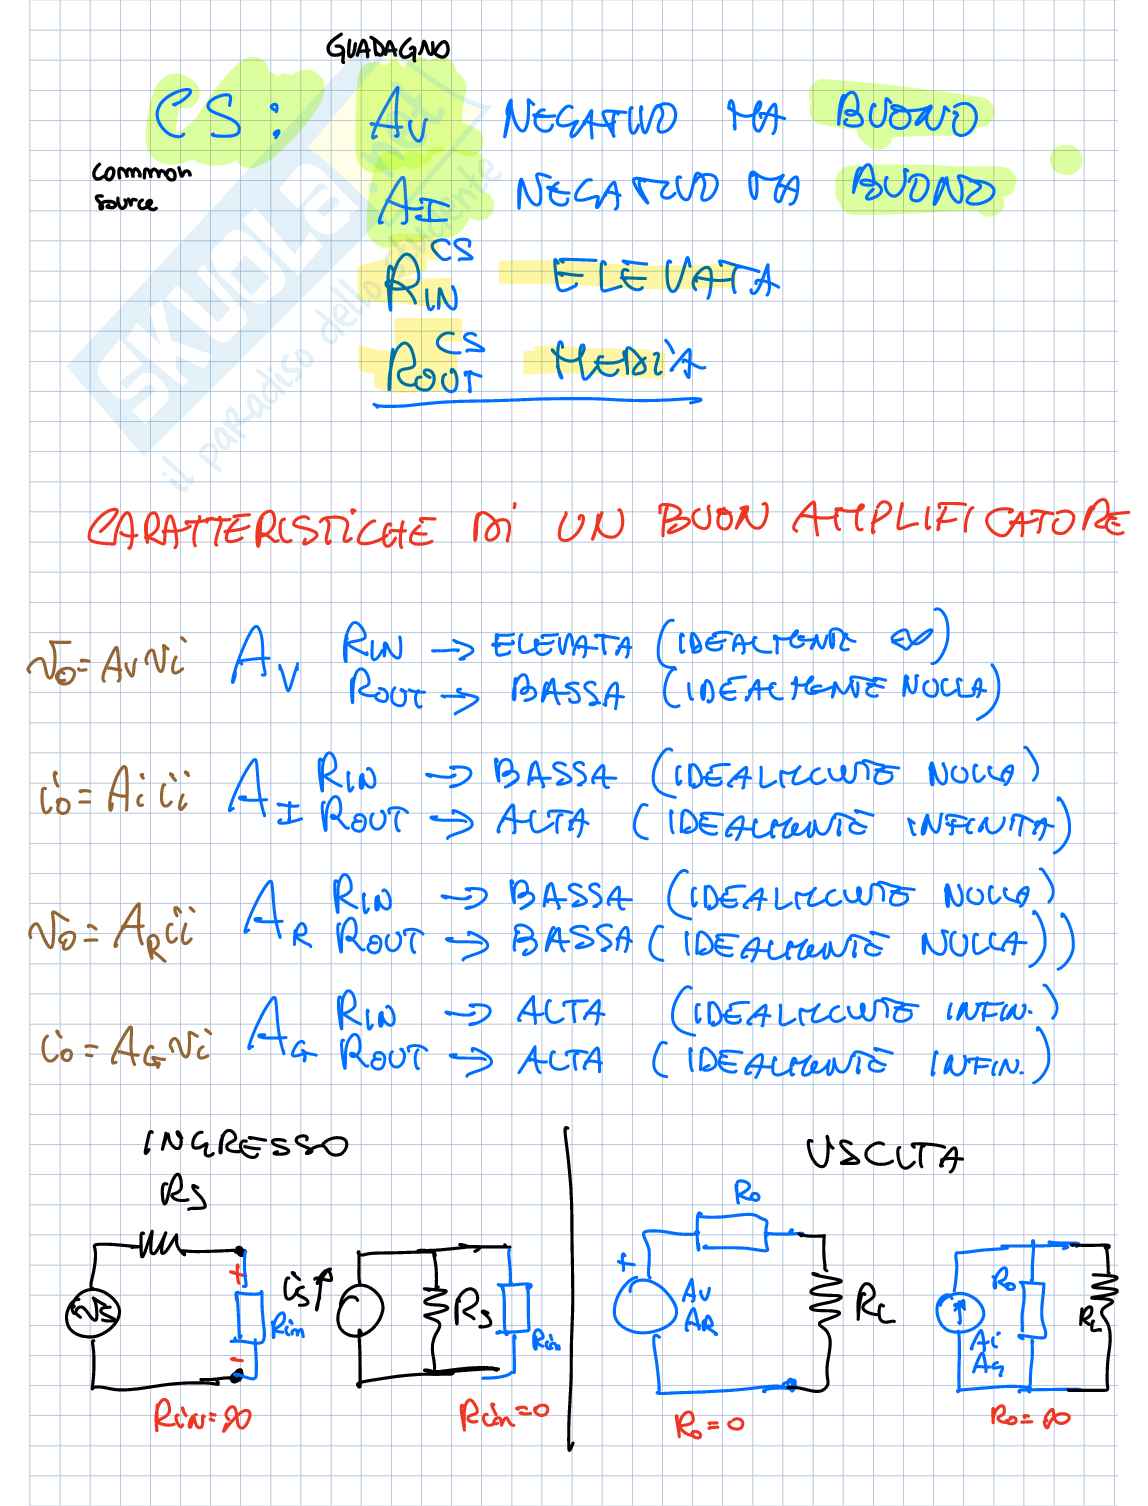 GUADAGNO
CS: Av NEGATIVO MA BUONO
Common
Source
AI NEGATIVO MA BUONO
RIN CS ELEVATA
ROUT CS MEDIA
SKUOLA.net
il paradiso dello studente
CARATTERISTICHE DI UN BUON AMPLIFICATORE
vo = Av vi AV RIN → ELEVATA (IDEALMENTE ∞)
ROUT → BASSA (IDEALMENTE NULLA)
io = Ai ii AI RIN → BASSA (IDEALMENTE NULLA)
ROUT → ALTA (IDEALMENTE INFINITA)
vo = AR ii AR RIN → BASSA (IDEALMENTE NULLA)
ROUT → BASSA (IDEALMENTE NULLA))
io = AG vi AG RIN → ALTA (IDEALMENTE INFIN.)
ROUT → ALTA (IDEALMENTE INFIN.)
INGRESSO USCITA
RS Ro
vs + Rin - is↑ RS Rin + Av AR RL Ro Ai AG RL
Rin=∞ Rin=0 Ro=0 Ro=∞